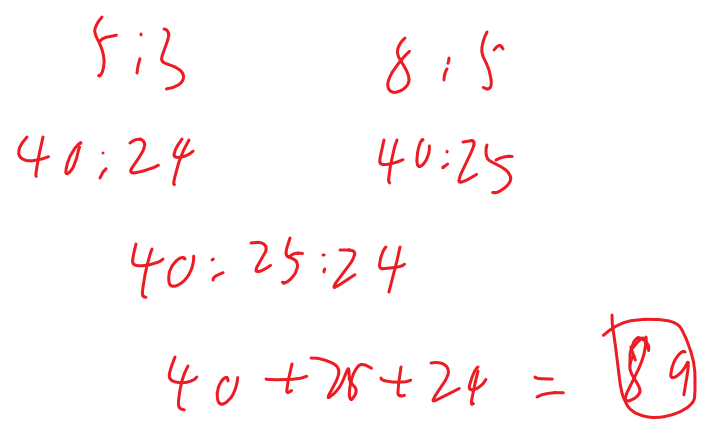 5:3 8:5
40:24 40:25
40:25:24
40+25+24=89